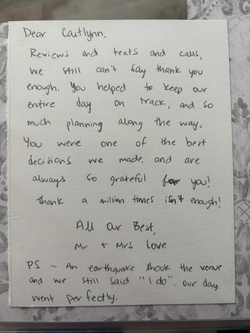 Dear Caitlynn,
Reviews and texts and calls,
we still can't say thank you
enough. You helped to keep our
entire day on track, and so
much planning along the way.
You were one of the best
decisions we made, and are
always so grateful for you!
Thank a million times isn't enough!
All Our Best,
Mr + Mrs Love
PS - An earthquake shook the venue
and we still said "I do", our day
went perfectly.